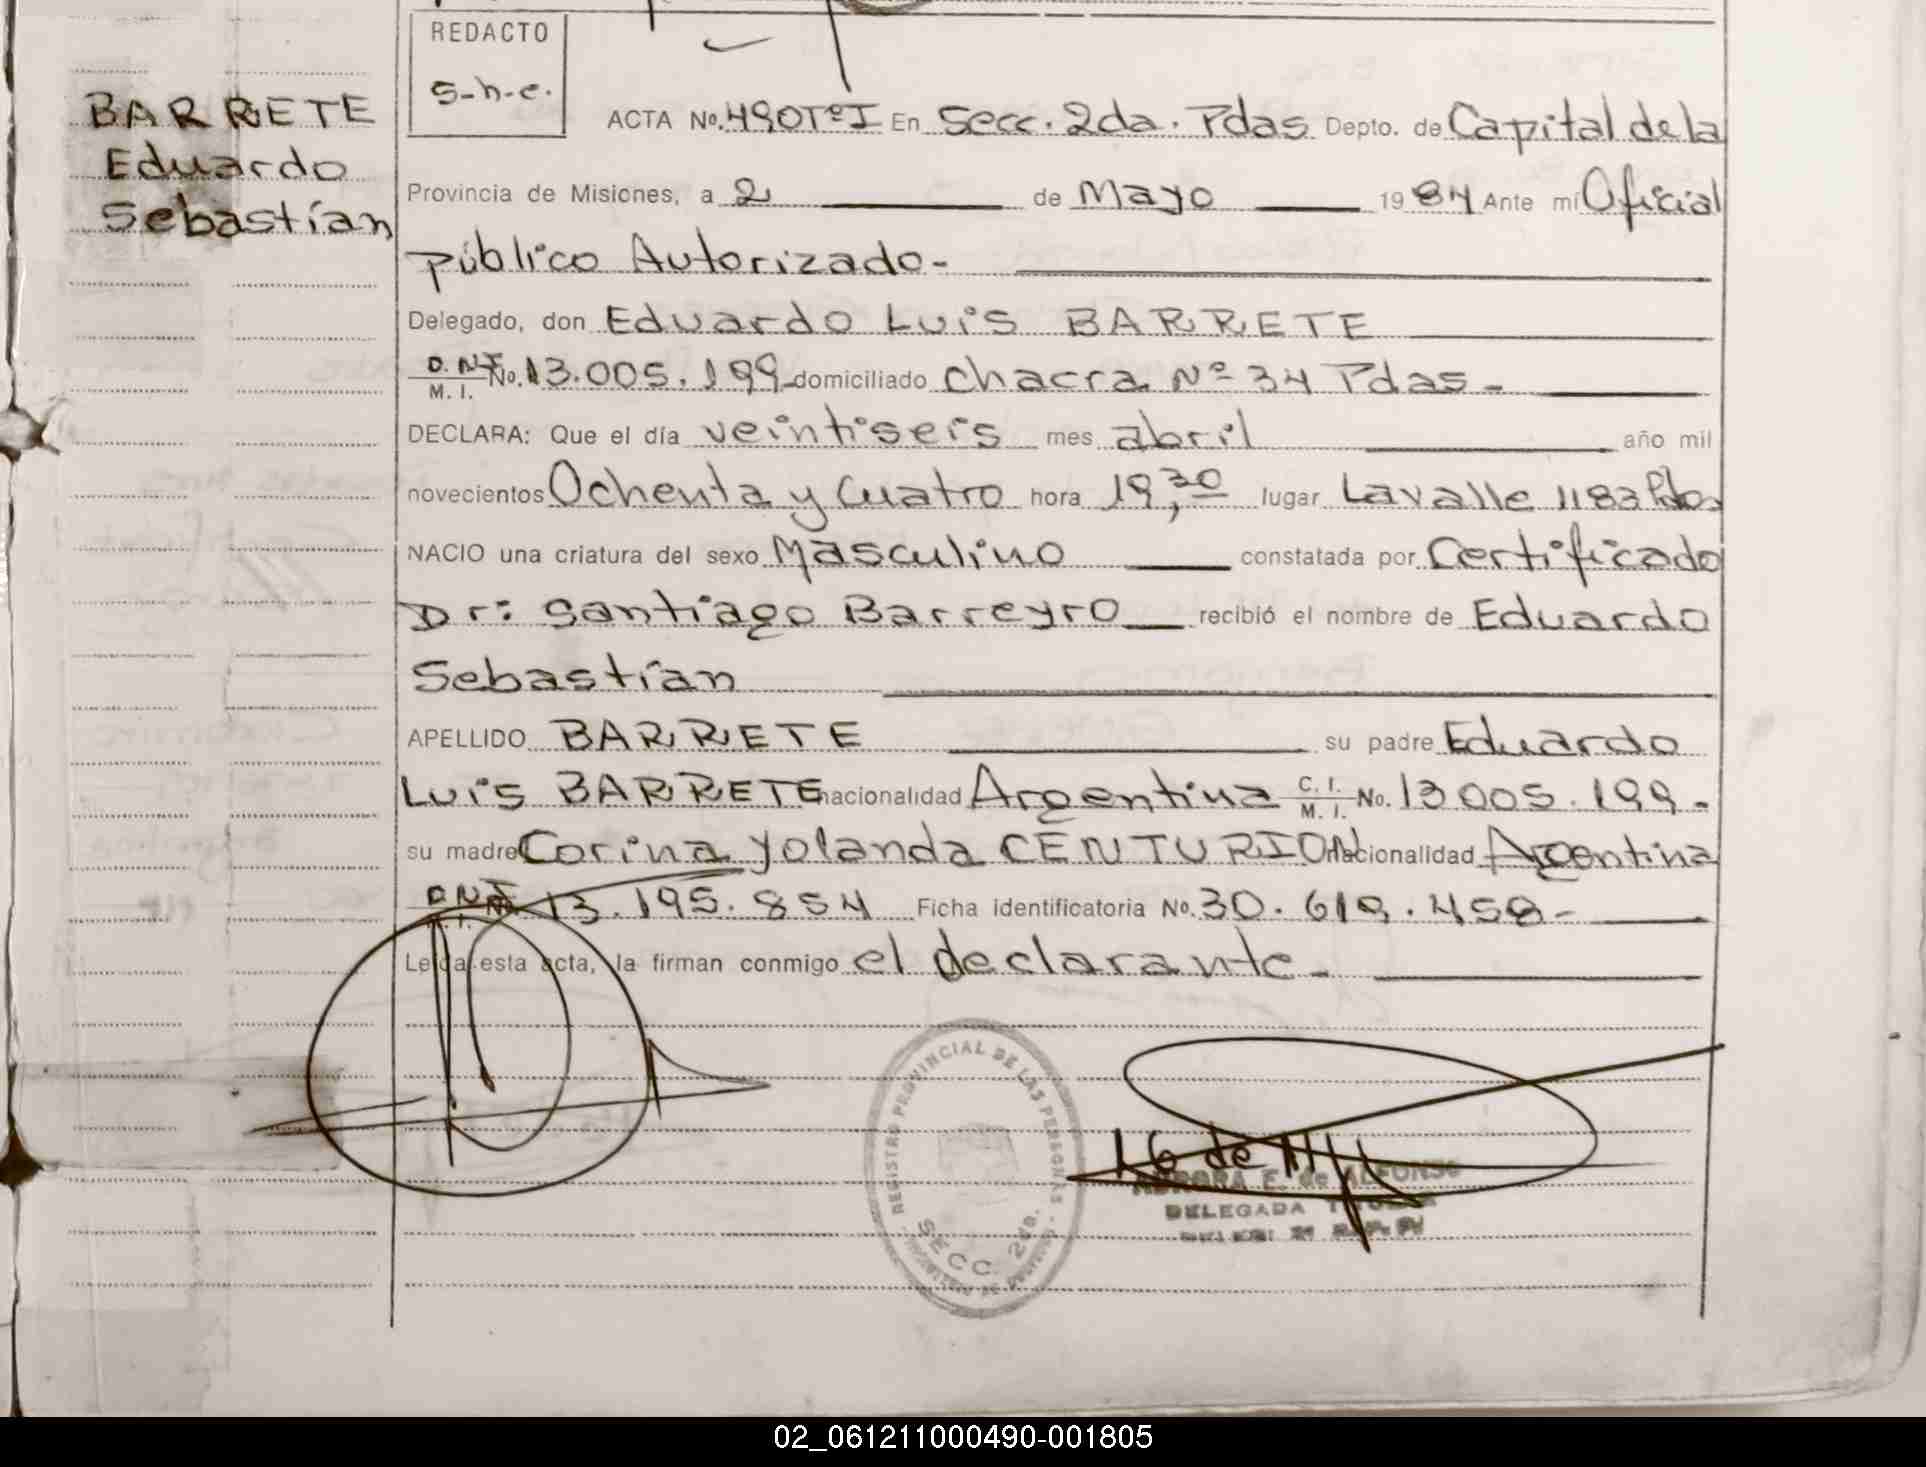 REDACTO
S-h-e.
BARRETE
Eduardo
Sebastían
ACTA No. 490 Tº I En Secc. 2da. Pdas Depto. de Capital de la
Provincia de Misiones, a 2 de Mayo 1984 Ante mí Oficial
Público Autorizado-
Delegado, don Eduardo Luis BARRETE
D.N.I. M. I. No. 13.005.199 domiciliado chacra Nº 34 Pdas-
DECLARA: Que el día veintiseis mes abril año mil
novecientos Ochenta y Cuatro hora 19,30 lugar Lavalle 1183 Pdas
NACIO una criatura del sexo Masculino constatada por Certificado
Dr: Santiago Barreyro recibió el nombre de Eduardo
Sebastían
APELLIDO BARRETE su padre Eduardo
Luis BARRETE nacionalidad Argentina C. I. M. I. No. 13005.199-
su madre Corina Yolanda CENTURION nacionalidad Argentina
D.N.I. 13.195.854 Ficha identificatoria No. 30.619.458-
Leída esta acta, la firman conmigo el declarante-
REGISTRO PROVINCIAL DE LAS PERSONAS
SECC. 2da.
E. de ALFONSO
DELEGADA TITULAR
02_061211000490-001805